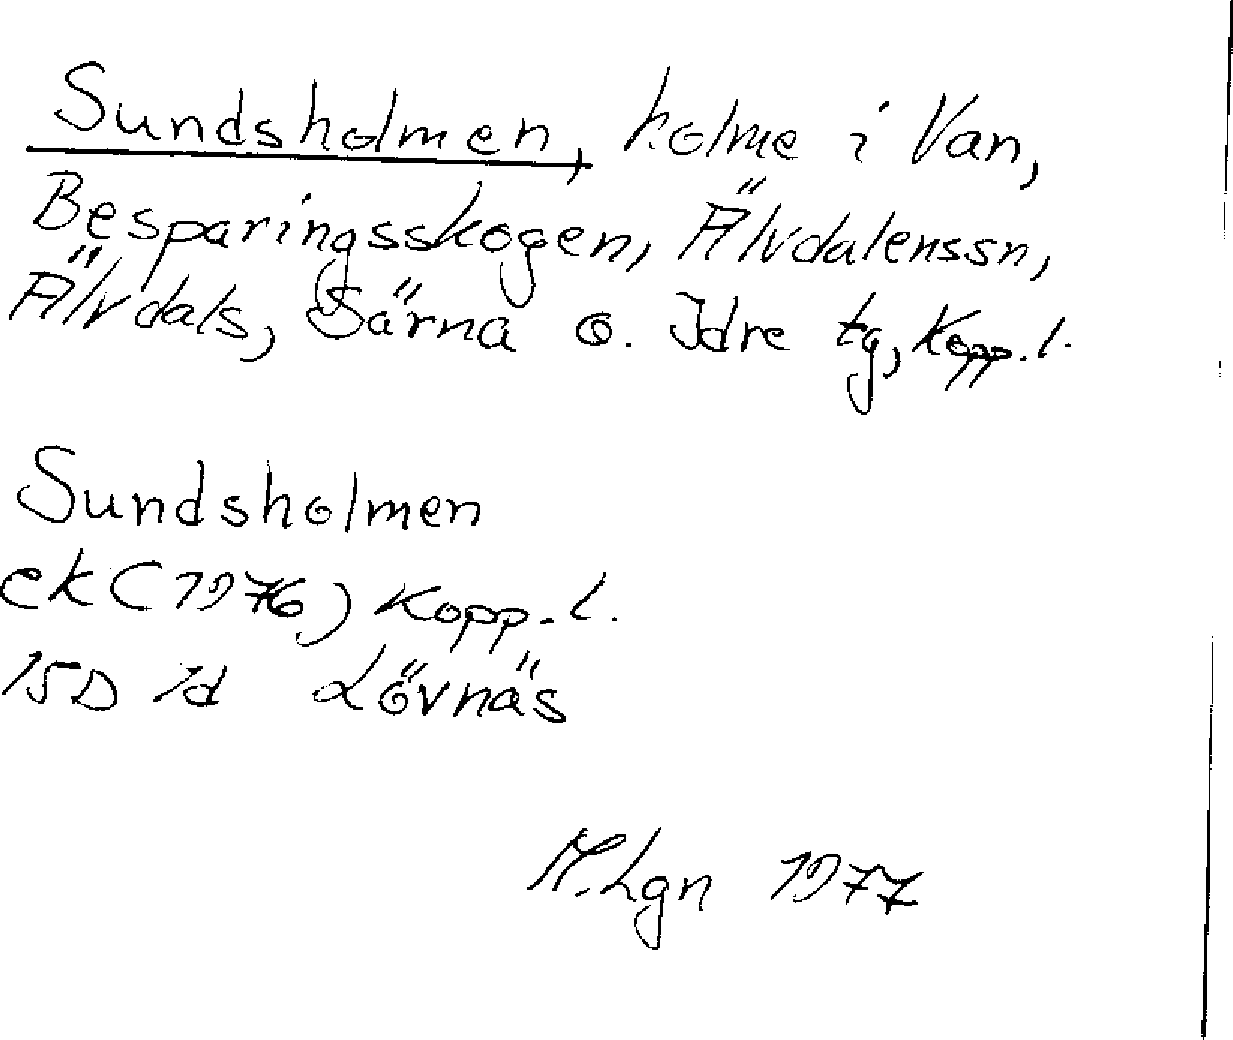 Sundsholmen, holme i Van,
Besparingsskogen, Älvdalenssn,
Älvdals, Särna o. Idre tg, Kopp.l.
Sundsholmen
ek (1976) Kopp.l.
15D 1d Lövnäs
M.Lgn 1977